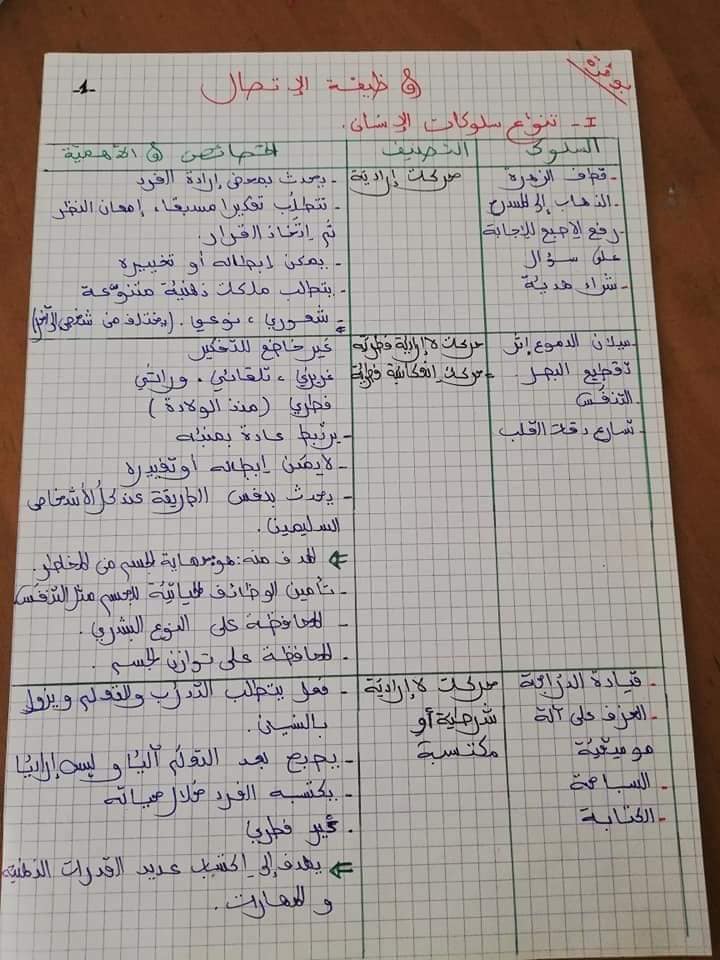 بوڨرة
وظيفة الإتصال
-1-
I- تنوّع سلوكات الإنسان.
السلوك
التصنيف
الخصائص و الأهمية
- قطف الزهرة
- الذهاب إلى المسرح
- رفع الإصبع للإجابة
على سؤال
- شراء هدية
حركات إرادية
- يحدث بمحض إرادة الفرد
- تتطلب تفكيرا مسبقا، إمعان النظر
ثم إتخاذ القرار.
- يمكن إبطاله أو تغييره
- يتطلب ملكات ذهنية متنوّعة
- شعوري، نوعي. (يختلف من شخص لآخر)
- سيلان الدموع إثر
تقطيع البصل.
- التنفس
- تسارع دقات القلب
حركات لاإرادية فطرية
= حركات إنعكاسية فطرية
غير خاضع للتفكير
غريزي، تلقائي، وراثي
فطري (منذ الولادة)
- يرتبط عادة بمنبّه
- لا يمكن إبطاله أو تغييره
- يحدث بنفس الطريقة عند كل الأشخاص
السليمين.
⇐ الهدف منه: هو حماية الجسم من المخاطر.
- تأمين الوظائف الحياتية للجسم مثل التنفس
- المحافظة على النوع البشري.
- المحافظة على توازن الجسم.
- قيادة الدراجة
- العزف على آلة
موسيقية
- السباحة
- الكتابة
حركات لاإرادية
شرطية أو
مكتسبة
- فعل يتطلب التدرّب والتعلم و يزول
بالنسيان.
- يصبح بعد التعلم آليا و ليس إراديا
- يكتسبه الفرد خلال حياته
- غير فطري
⇐ يهدف إلى إكتساب عديد القدرات الذهنية
و المهارات.